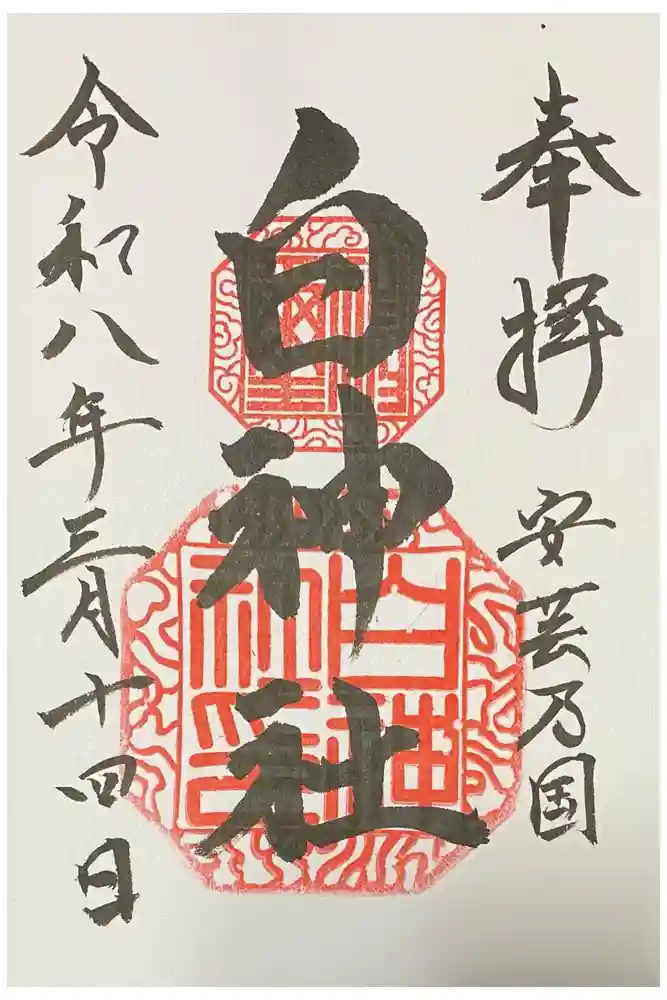 奉拝 安芸乃国
白神社
令和八年三月十四日